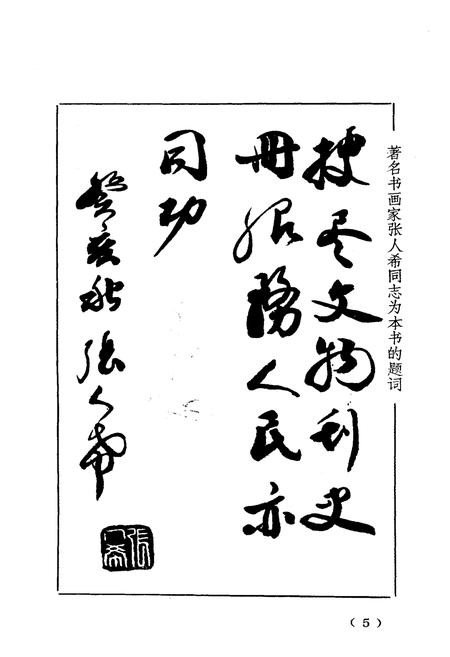 著名书画家张人希同志为本书的题词
搜尽文物刊史
册服務人民亦
同功
癸亥秋 张人希
（5）